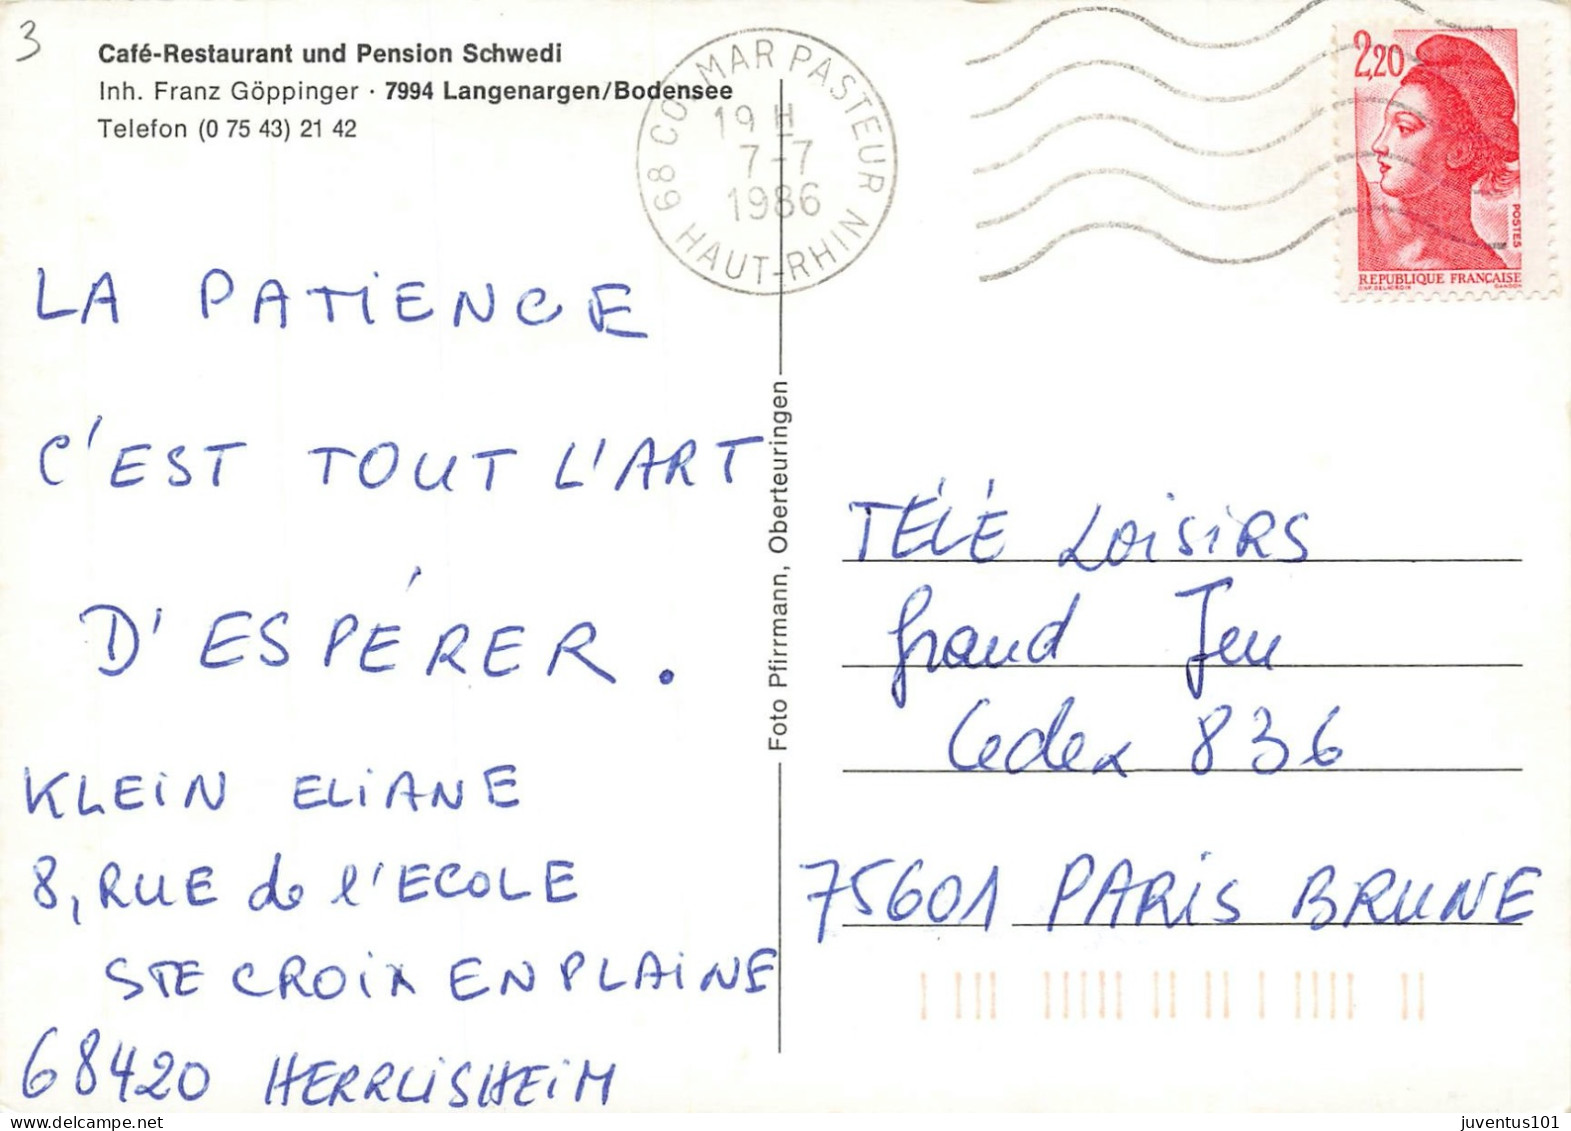 3
Café-Restaurant und Pension Schwedi
Inh. Franz Göppinger · 7994 Langenargen/Bodensee
Telefon (0 75 43) 21 42
68 COLMAR PASTEUR
19 H
7-7
1986
HAUT-RHIN
2,20
POSTES
REPUBLIQUE FRANÇAISE
D'AP. DELACROIX GANDON
LA PATIENCE
C'EST TOUT L'ART
D'ESPÉRER.
KLEIN ELIANE
8, RUE de l'ECOLE
STE CROIX EN PLAINE
68420 HERRLISHEIM
Foto Pfirrmann, Oberteuringen
TÉLÉ LOISIRS
Grand Jeu
Cedex 836
75601 PARIS BRUNE
juventus101